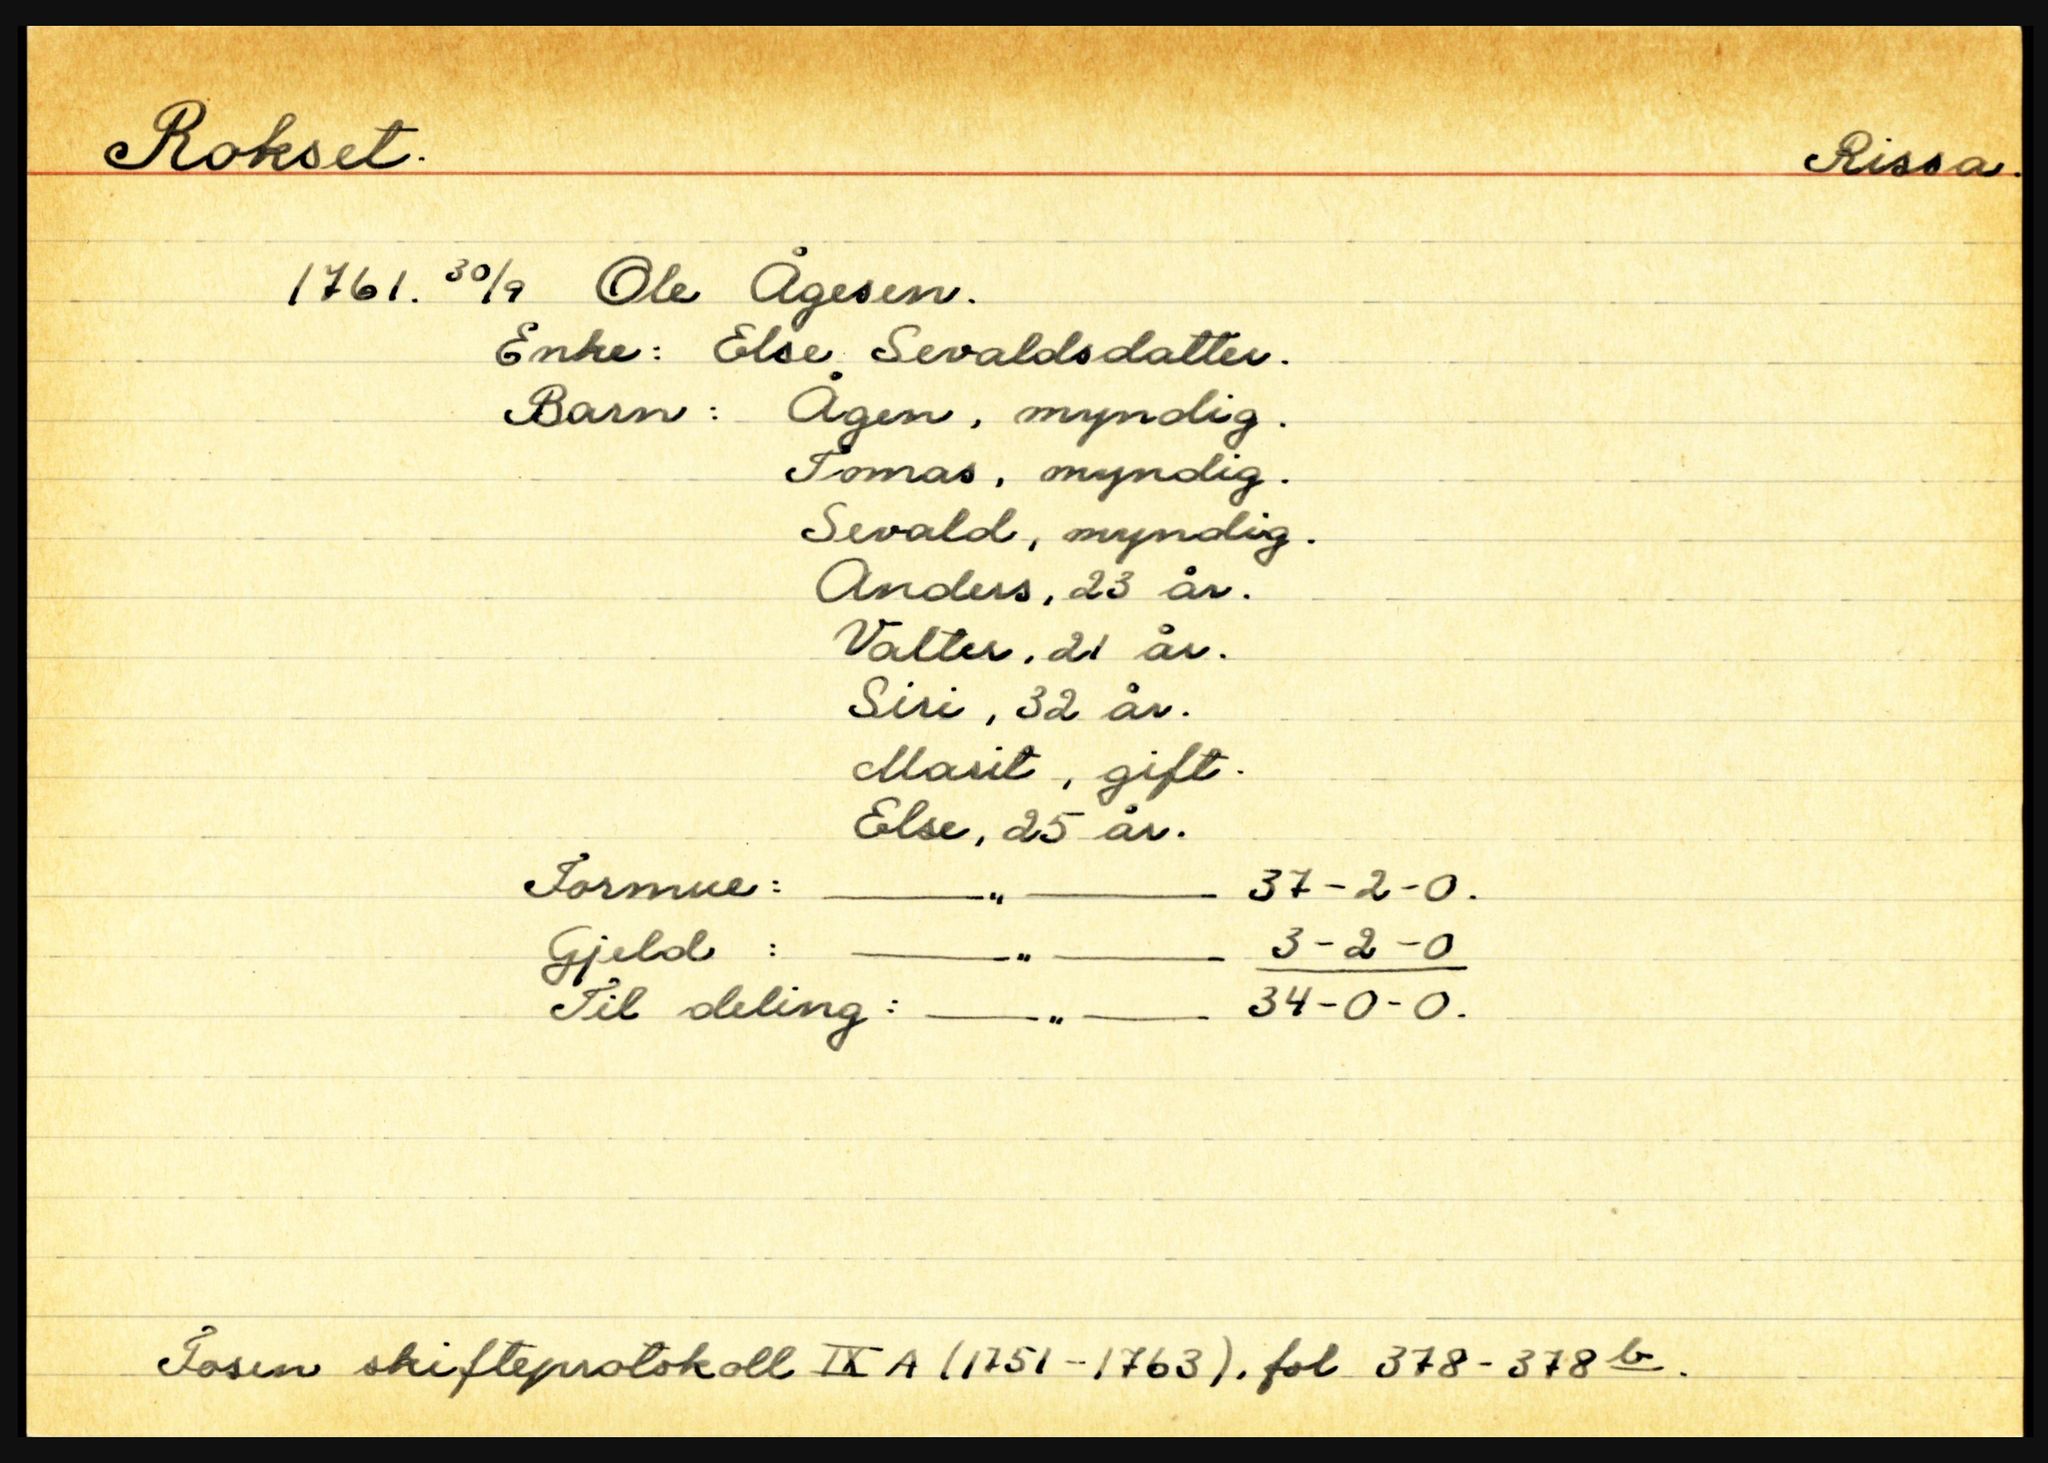 Rokset.
Rissa.
1761. 30/9 Ole Ågesen.
Enke: Else Sevaldsdatter.
Barn: Ågen, myndig.
Tomas, myndig.
Sevald, myndig.
Anders, 23 år.
Valter, 21 år.
Siri, 32 år.
Marit, gift.
Else, 25 år.
Formue: —— " —— 37-2-0.
Gjeld : —— " —— 3-2-0
Til deling: —— " —— 34-0-0.
Fosen skifteprotokoll IX A (1751-1763), fol 378-378 b.